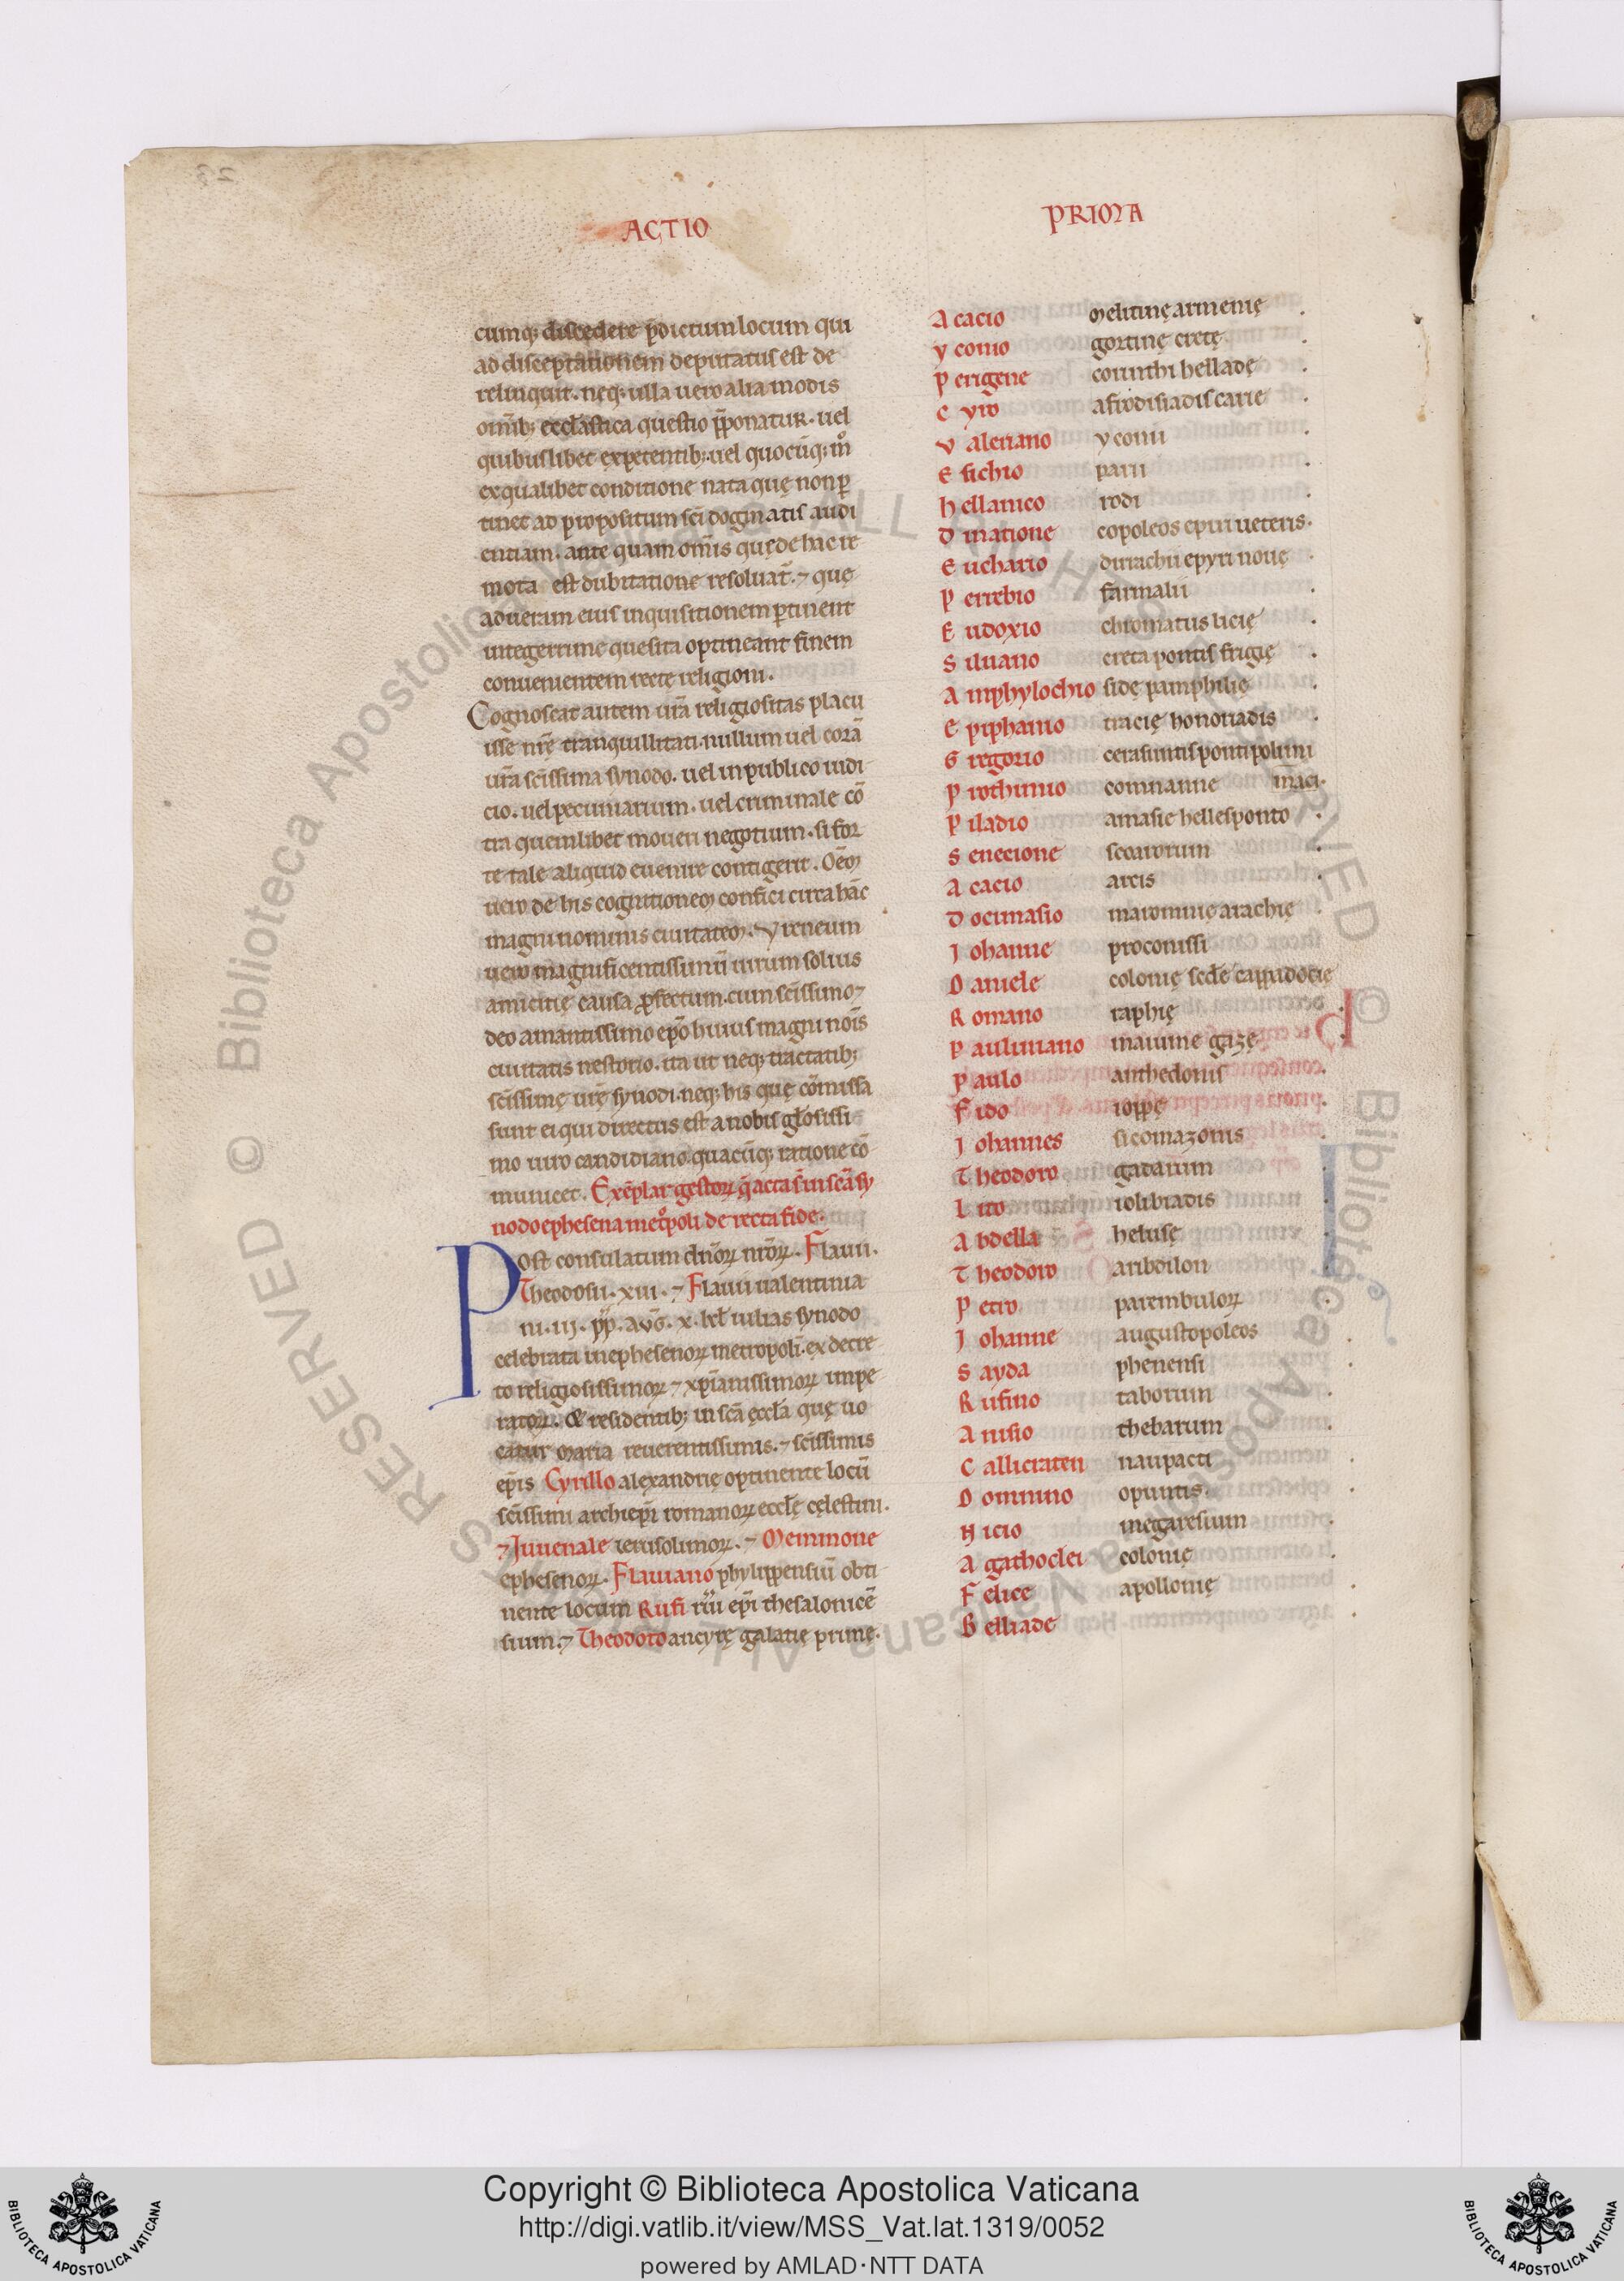 ACTIO
PRIMA
cumq; discedere p̄dictum locum qui
ad disceptationem deputatus est de
relinquit. neq; ulla uero alia modis
om̄ib; eccl̄astica questio p̄ponatur. uel
quibuslibet expetentib; uel quocūq; m̊
ex qualibet conditione nata quę non ꝑ
tinet ad propositum sc̄i dogmatis audi
entiam. ante quam om̄is quę de hac re
mota est dubitatione resoluat̄. ⁊ que
ad uerum eius inquisitionem ꝑtinent
integerrime quesita optineant finem
conuenientem recte religioni.
Cognoscat autem ur̄a religiositas placu
isse nr̄ę tranquillitati. nullum uel corā
ur̄a sc̄issima synodo. uel in publico iudi
cio. uel pecuniarium. uel criminale cō
tra quemlibet moueri negotium. si for
te tale aliquid euenire contigerit. Oēm
uero de his cognitionem confici circa hāc
magni nominis ciuitatem. Yreneum
uero magnificentissimū uirum solius
amicitię causa ꝓfectum. cum sc̄issimo ⁊
deo amantissimo ep̄o huius magni nōis
ciuitatis nestorio. ita ut neq; tractatib;
sc̄issimę ur̄ę synodi. neq; his quę cōmissa
sunt ei qui directus est a nobis gl̄osissi
mo uiro candidiano quacūq; ratione cō
municet. Exēplar gestoꝝ q̄ acta s̄ in sc̄a sy
nodo ephesena met̊poli de recta fide.
Post consulatum dn̄oꝝ nr̄oꝝ. Flauii.
Theodosii. xiii. ⁊ Flauii ualentinia
ni. iij. pp̄. avḡ. x. kl̄ iulias synodo
celebrata in ephesenoꝝ metropoli. ex decre
to religiosissimoꝝ ⁊ xp̄ianissimoꝝ impe
ratoꝝ. & residentib; in sc̄a eccl̄a quę uo
catur maria reuerentissimis. ⁊ sc̄issimis
ep̄is Cyrillo alexandrię optinente locū
sc̄issimi archiep̄i romanoꝝ eccl̄ę cęlestini.
⁊ Juuenale ierusolimoꝝ. ⁊ Memnone
ephesenoꝝ. Flauiano phylippensiū obti
nente locum Rufi ep̄i thesalonicē
sium. ⁊ Theodoto ancyrę galatię primę.
Acacio melitinę armenię
yconio gortinę cretę
perigene corinthi helladę
cyro afrodisiadis carie
valeriano yconii
Esichio parii
hellanico rodi
Dinatione copoleos epiri ueteris.
Euchario dirrachii epyri nouę
perrebio farmalii
Eudoxio chromatus licię
Siluano creta pontis frigię
Amphylochio sidę pamphilię
Epiphanio tracię honoriadis
Gregorio cerasuntis ponti polimi
prothimio comanne maci.
piladio amasie hellesponto
Senecione scoarorum
Acacio arcis
Docimasio maroninę arachię
Johanne proconissi
Daniele colonię scd̄e cappadocię
Romano raphię
pauliniano maiume gazę
paulo anthedonis
Fido ioppę
Johannes sicomazonis
Theodoro gadarum
Lito iolibiadis
Abdella helusę
Theodoro aribdilon
petro parembuloꝝ
Johanne augustopoleos
Sayda phenensi
Rufino taborum
Anisio thebarum
Callicraten naupacti
Domnino opuntis.
Nicio megaresium
Agathoclei colonię
Felice apollonię
Belliade
© Biblioteca Apostolica Vaticana ALL RIGHTS RESERVED
Copyright © Biblioteca Apostolica Vaticana
http://digi.vatlib.it/view/MSS_Vat.lat.1319/0052
powered by AMLAD·NTT DATA
BIBLIOTECA APOSTOLICA VATICANA
BIBLIOTECA APOSTOLICA VATICANA